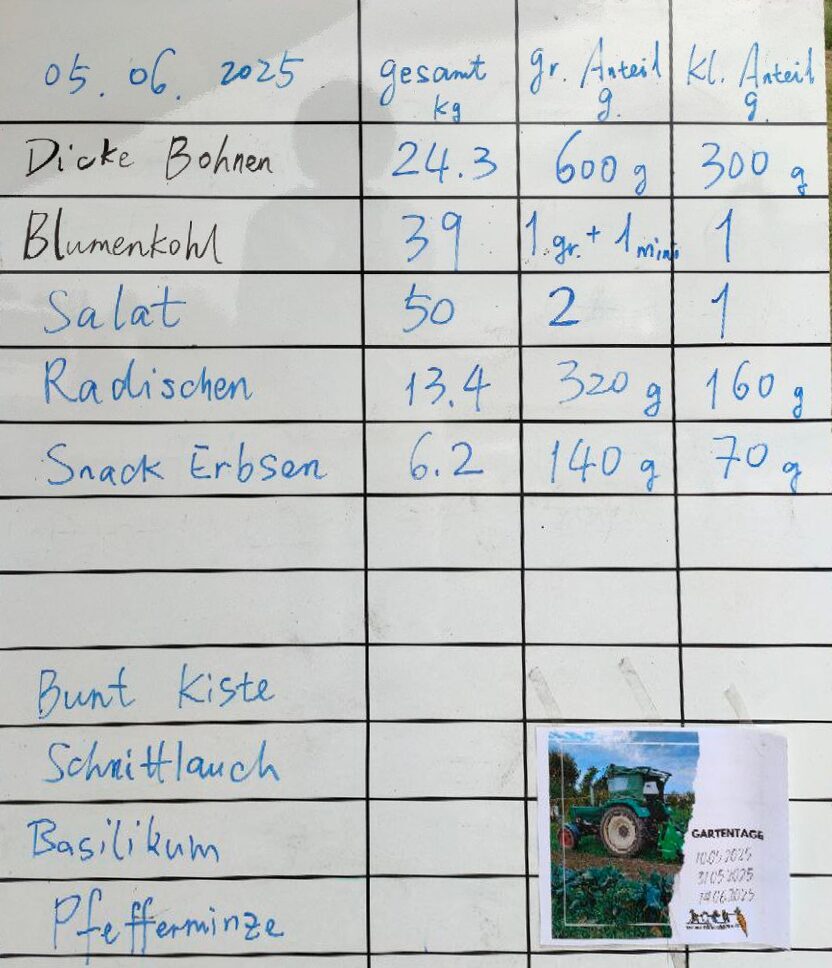 05. 06. 2025 gesamt kg gr. Anteil g. kl. Anteil g.
Dicke Bohnen 24.3 600 g 300 g
Blumenkohl 39 1 gr. + 1 mini 1
Salat 50 2 1
Radischen 13.4 320 g 160 g
Snack Erbsen 6.2 140 g 70 g
Bunt Kiste
Schnittlauch
Basilikum
Pfefferminze
GARTENTAGE
10.05.2025
31.05.2025
14.06.2025